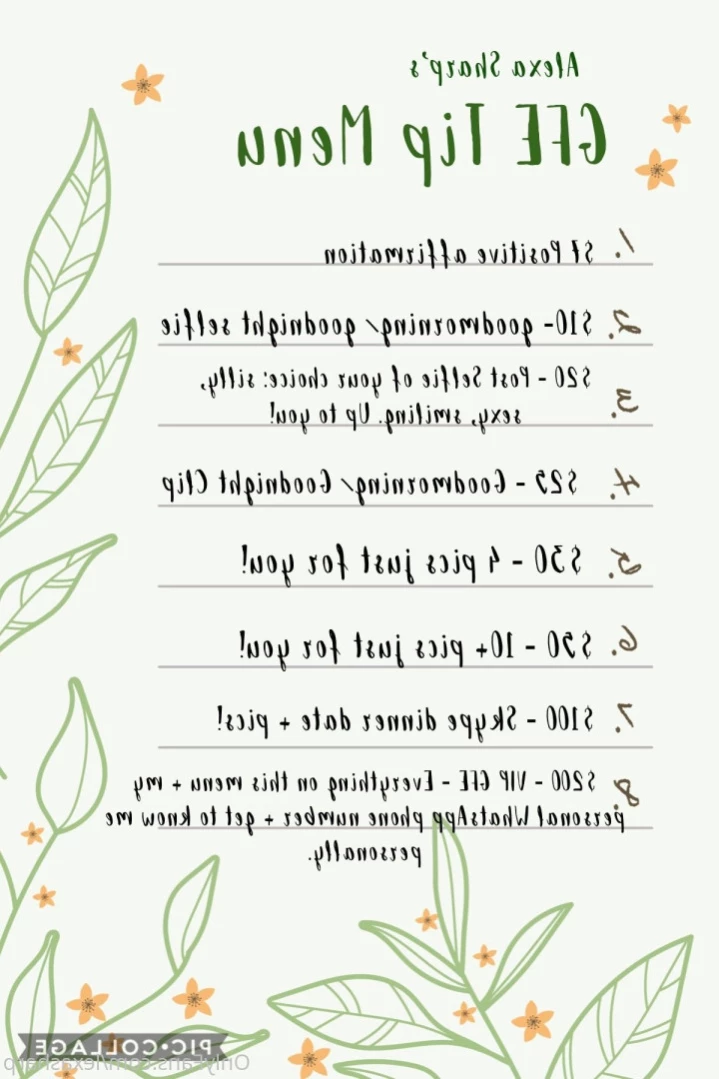 Alexa Sharp's
GFE Tip Menu
1. $7 Positive affirmation
2. $10- goodmorning/goodnight selfie
3. $20 - Post Selfie of your choice: silly,
sexy, smiling. Up to you!
4. $25 - Goodmorning/Goodnight Clip
5. $30 - 4 pics just for you!
6. $50 - 10+ pics just for you!
7. $100 - Skype dinner date + pics!
8. $200 - VIP GFE - Everything on this menu + my
personal WhatsApp phone number + get to know me
personally.
PIC•COLLAGE
OnlyFans.com/lexasharp